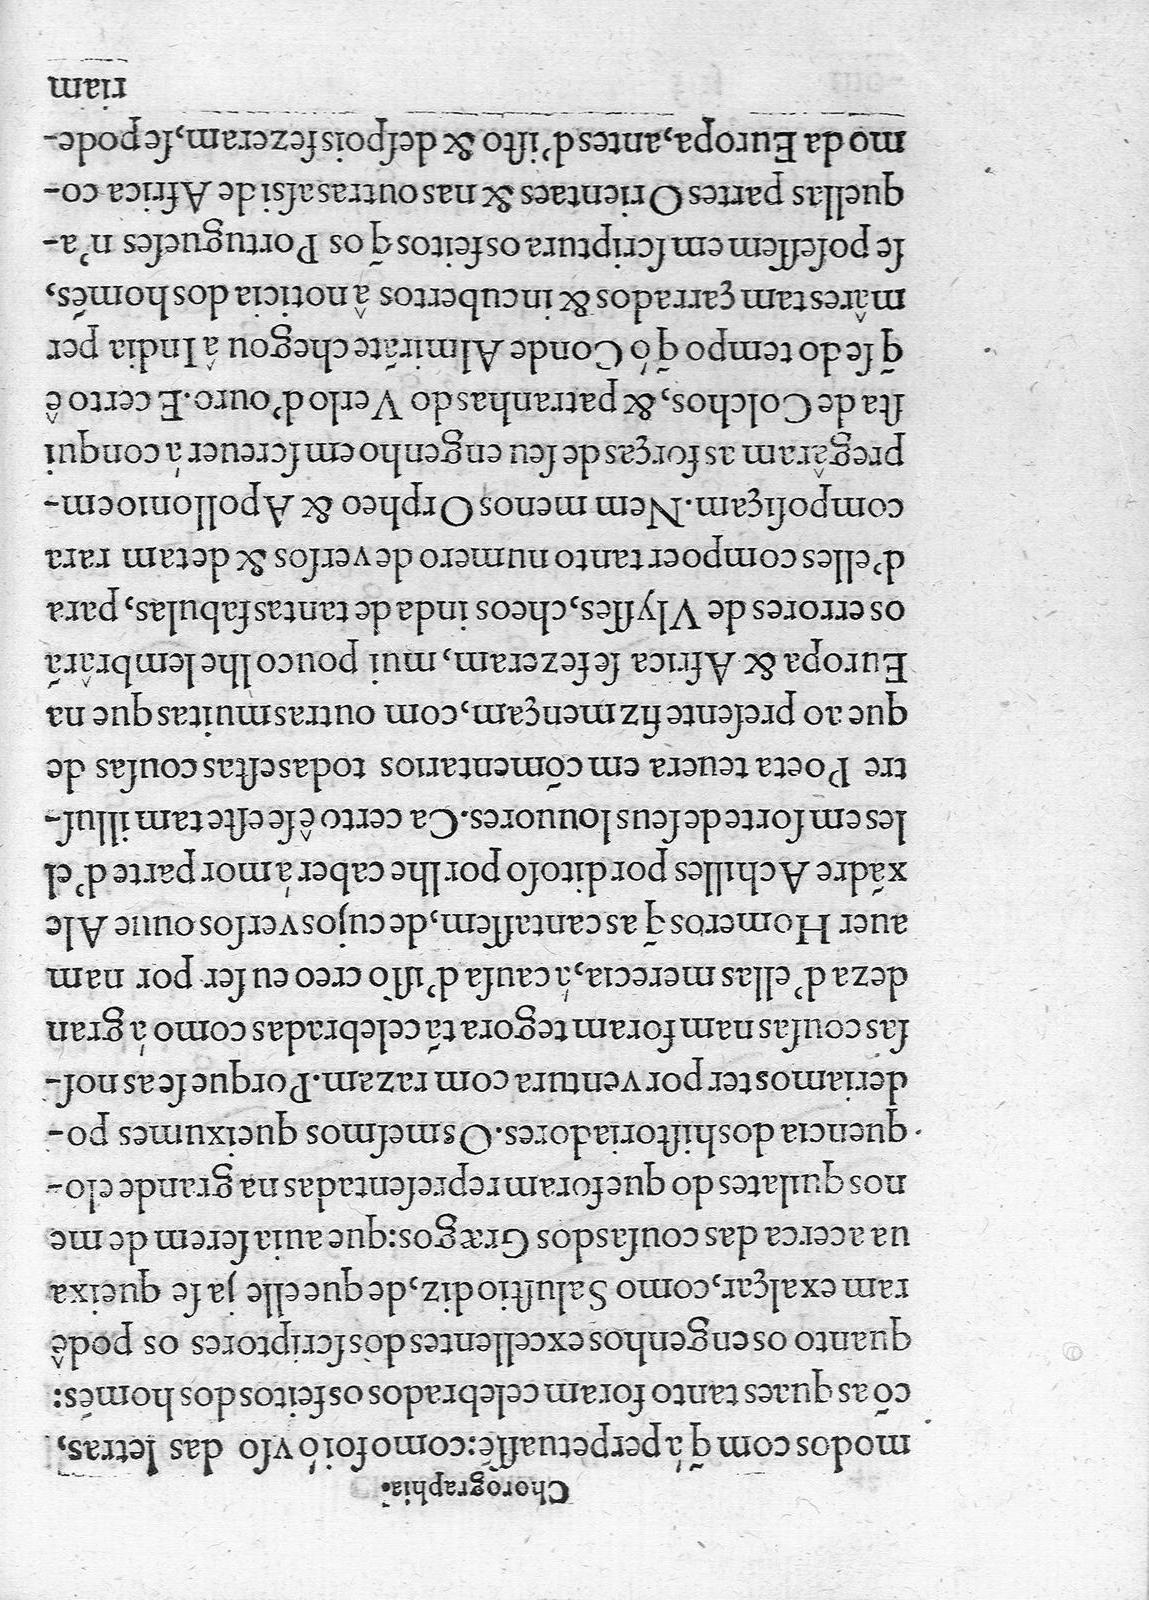 Chorographia.
modos com q̃ á perpetuaſſẽ: como foi ó vſo das letras,
cõ as quaes tanto foram celebrados os feitos dos homẽs:
quanto os engenhos excellentes dos ſcriptores os podẽ
ram exalçar, como Saluſtio diz, de que elle ja ſe queixa
ua acerca das couſas dos Grægos: que auia ſerem de me
nos quilates do que foram repreſentadas na grande elo-
quencia dos hiſtoriadores. Os meſmos queixumes po-
deriamos ter por ventura com razam. Porque ſe as noſ-
ſas couſas nam foram tegora tã celebradas como á gran
deza d'ellas merecia, á cauſa d'iſſo creo eu ſer por nam
auer Homeros q̃ as cantaſſem, de cujos verſos ouue Ale
xãdre Achilles por ditoſo por lhe caber á mor parte d'el
les em ſorte de ſeus louuores. Ca certo ê ſe eſte tam illuſ-
tre Poeta teuera em cõmentarios todas eſtas couſas de
que ao preſente fiz mençam, com outras muitas que na
Europa & Africa ſe fezeram, mui pouco lhe lembrârã
os errores de Vlyſſes, cheos inda de tantas fabulas, para
d'elles compoer tanto numero de verſos & de tam rara
compoſiçam. Nem menos Orpheo & Apollonio em-
pregâram as forças de ſeu engenho em ſcreuer á conqui
ſta de Colchos, & patranhas do Verlo d'ouro. E certo ê
q̃ ſe do tempo q̃ ó Conde Almirãte chegou â India per
mâr estam çarrados & incubertos â noticia dos homẽs,
ſe poſeſſem em ſcriptura os feitos q̃ os Portugueſes n'a-
quellas partes Orientaes & nas outras aſsi de Africa co-
mo da Europa, antes d'iſto & deſpois fezeram, ſe pode-
riam